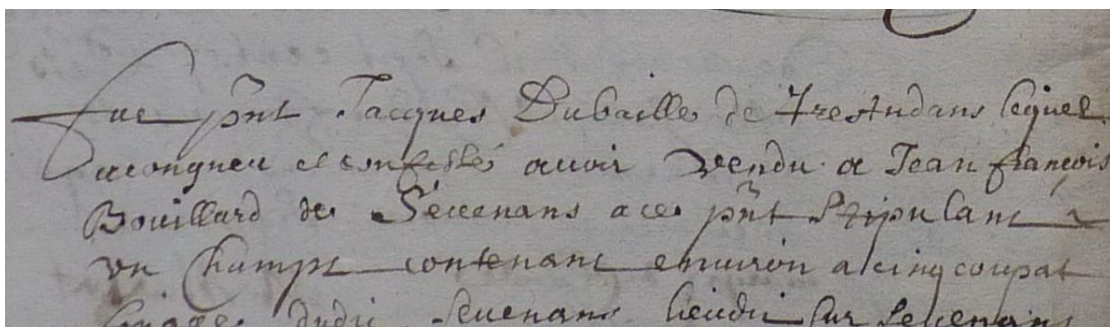 Fut pnt Jacques Dubaille de Trestudans lequel
a congneu et confessé avoir vendu a Jean françois
Bouillard de Sévenans a ce pnt stipulant
un Champt contenant environ a cinq coupat
dudit Sevenans lieudit sur Sevenans